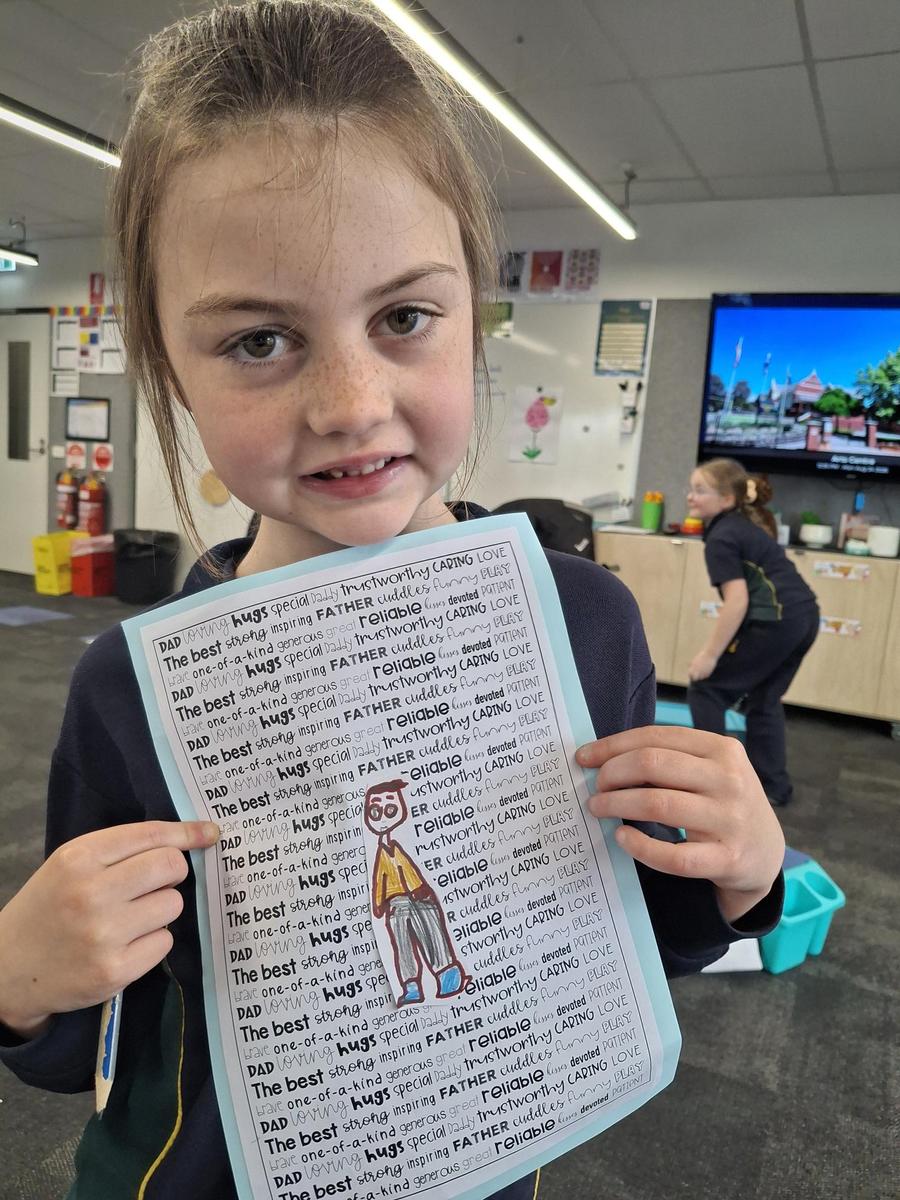 DAD loving hugs special Daddy trustworthy CARING LOVE
The best strong inspiring FATHER cuddles funny PLAY
brave one-of-a-kind generous great reliable kisses devoted PATIENT
DAD loving hugs special Daddy trustworthy CARING LOVE
The best strong inspiring FATHER cuddles funny PLAY
brave one-of-a-kind generous great reliable kisses devoted PATIENT
DAD loving hugs special Daddy trustworthy CARING LOVE
The best strong inspiring FATHER cuddles funny PLAY
brave one-of-a-kind generous great reliable kisses devoted PATIENT
DAD loving hugs special Daddy trustworthy CARING LOVE
The best strong inspiring FATHER cuddles funny PLAY
brave one-of-a-kind generous eliable kisses devoted PATIENT
DAD loving hugs speci ustworthy CARING LOVE
The best strong inspirin ER cuddles funny PLAY
brave one-of-a-kind generc reliable kisses devoted PATIENT
DAD loving hugs spec rustworthy CARING LOVE
The best strong inspiri ER cuddles funny PLAY
brave one-of-a-kind gene eliable kisses devoted PATIENT
DAD loving hugs spe stworthy CARING LOVE
The best strong inspir R cuddles funny PLAY
brave one-of-a-kind gene eliable kisses devoted PATIENT
DAD loving hugs spe stworthy CARING LOVE
The best strong inspi cuddles funny PLAY
brave one-of-a-kind generous reliable kisses devoted PATIENT
DAD loving hugs special Daddy trustworthy CARING LOVE
The best strong inspiring FATHER cuddles funny PLAY
brave one-of-a-kind generous great reliable kisses devoted PATIENT
DAD loving hugs special Daddy trustworthy CARING LOVE
The best strong inspiring FATHER cuddles funny PLAY
brave one-of-a-kind generous great reliable kisses devoted PATIENT
Arts Centre